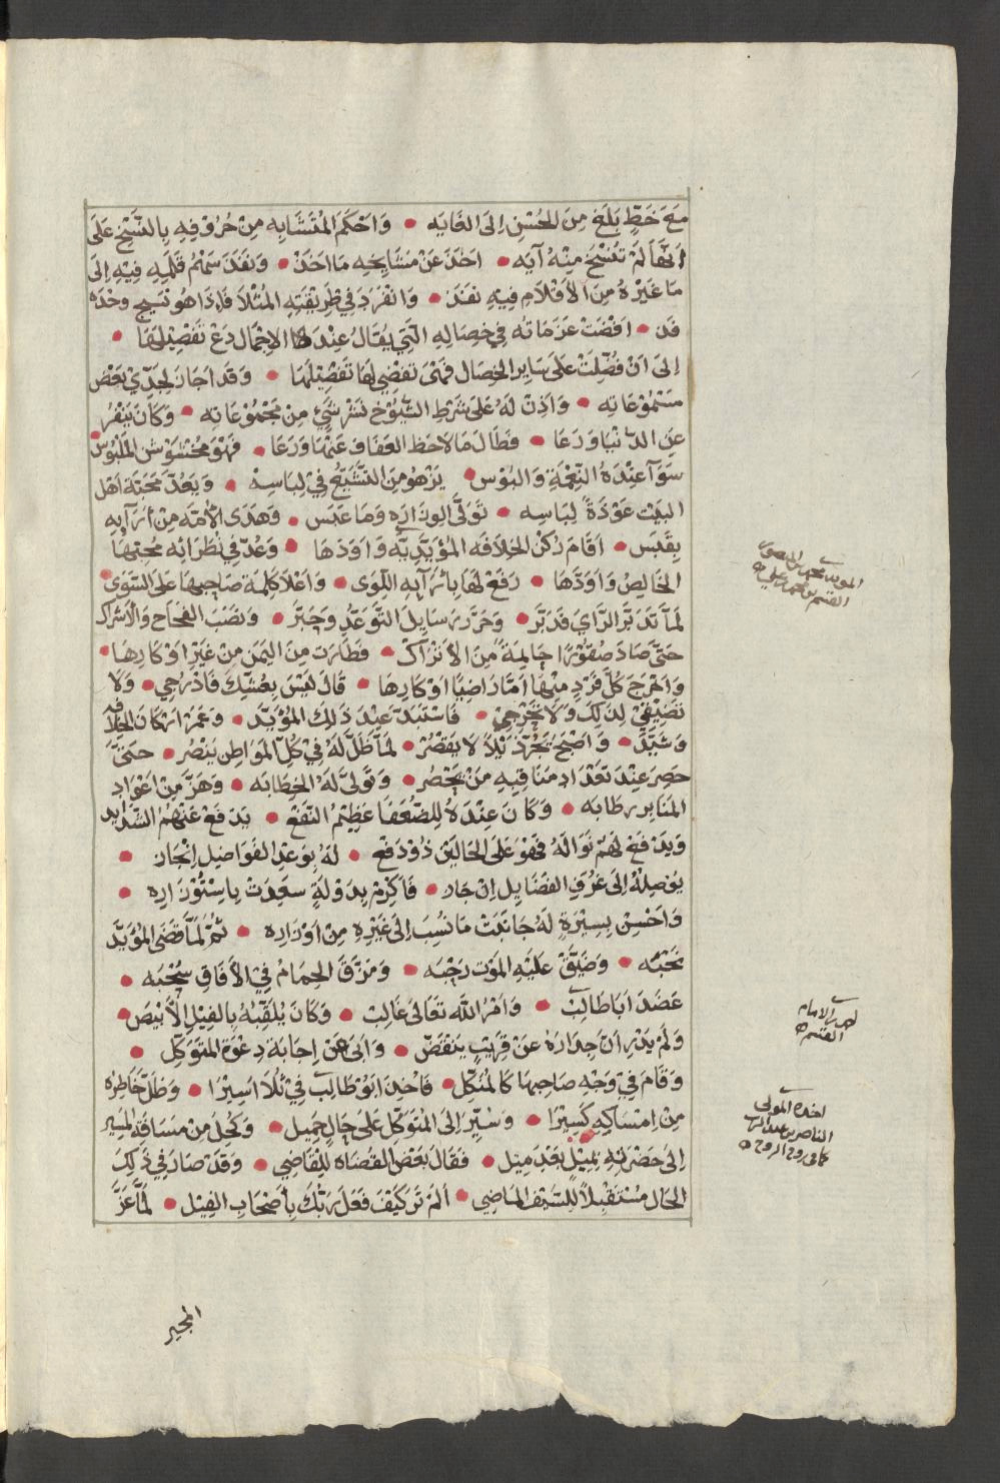 مَعَ خَطٍّ بَلَغ مِنَ الحُسْنِ اِلىَ الغَايَه • وَاَحْكَمَ المُتَشَابِه مِنْ حُرُوْفِهِ بِالنَّسْخِ عَلَى
اَنَّهَا لَمْ تُنْسَخْ مِنْهُ آيَه • اَخَذَ عَنْ مَشَايِخِه مَا اَخَذَ • وَنَفَذَ سَهْمُ قَلَمِهِ فِيْهِ اِلَى
مَا غَيْرُهُ مِنَ الأَقْلاَمِ فِيْهِ نَفَذَ • وَانْفَرَدَ فِي طَرِيْقَتِهِ المُثْلاَ فَاِذَا هُوَ نَسِيْجُ وَحْدَه
قَد • اَفْضَتْ عَزَمَاتُه فِي خِصَالِهِ الَّتِي يُقَالُ عِنْدَ الاِجْمَالِ دَعْ تَفْصِيْلَهَا •
اِلىَ اَنْ فُضِّلَتْ عَلَى سَايِرِ الخِصَالِ فَمَتَى تَقْضِي لَهَا تَفْضِيْلَهَا • وَقَد اَجَازَ لِجَدِّي بَعْضَ
مَسْمُوْعَاتِه • وَاَذِنَ لَهُ عَلَى شَرْطِ الشُّيُوْخِ نَشْرَ شَيْءٍ مِنْ مَجْمُوْعَاتِه • وَكَانَ يَنْفُرُ
عَنِ الدُّنْيَا وَرَعَا • فَطَالَ مَا لاَحَظَ العَفَافَ عَنْهَا وَرَعَا • فَهْوَ مُخْشَوْشِنُ المَلْبُوْس
سَوَآءٌ عِنْدَهُ النِّعْمَةُ وَالبُوْس • يَزْهُو مِنَ التَّشَيُّعِ فِي لِبَاسِهْ • وَيَعُدُّ مَحَبَّةَ اَهْلِ
البَيْتِ عَوْذَةً لِبَاسِه • تَوَلَّى الوِزَارَه وَمَا عَبَس • وَهَدَى الأُمَّه مِنْ اٰرَآيِهِ
بِقَبَس • اَقَامَ رُكْنَ الخِلاَفَه المُؤَيَّدِيَّه وَاَوَدَهَا • وَعُدَّ فِي نُظَرَائِه مُحِبَّهَا
الخَالِصَ وَاَوَدَّهَا • رَفَعَ لَهَا بِاٰرَآيِهِ اللِّوَى • وَاَعْلاَ كَلِمَة صَاحِبِهَا عَلَى السَّوَى
لَمَّا تَدَبَّرَ الرَّاي قَدْبَّر • وَحَرَّرَ رَسَايِلَ التَّوَعُّدِ وَحَبَّرَ • وَنَصَبَ الفِخَاخ وَالأَشْرَاك
حَتَّى صَادَ صُقُوْرًا جَاثِمَةً مِنَ الأَتْرَاك • فَطَارَت مِنَ اليَمَنِ مِنْ غَيْرِ اَوْكَارِهَا •
وَاَخْرَجَ كُلَّ فَرْدٍ مِنْهَا اَمَّا رَاضِيًا اَوْ كَارِهَا • قَالَ لَيْسَ بِعُشِّكَ فَادْرُجِي • وَلاَ
تَضِيْقِيْ لِذَلِكَ وَلاَ تَحْرَجِيْ • فَاسْتَبَدَّ عِنْدَ ذَلِكَ المُؤَيَّد • وَعَمَرَ اَرْكَانَ الخِلاَفَه
وَشَيَّد • وَاَصْبَحَ يَجُرُّ ذَيْلاً لاَ يَقْصُر • لَمَّا ظَلَّ لَهُ فِيْ كُلِّ المَوَاطِنِ يَنْصُر • حَتىَّ
حَصِرَ عِنْدَ تَعْدَادِ مَنَاقِبِهِ مَنْ يَحْصُر • وَتَولىَّ لَهُ الخِطَابَه • وَهَزَّ مِنْ اَعْوَادِ
المَنَابِرِ رِطَابَه • وَكَانَ عِنْدَهُ لِلضُّعَفَا عَظِيْمُ النَّفْع • يَدْفَعُ عَنْهُمُ الشَّدَايِد
وَيَدْفَعُ لَهُمْ نَوَالَهُ فَهْوَ عَلَى الحَالَيْنِ ذُوْ دَفْع • لَهُ بِوَعْدِ الفَوَاضِلِ اِنْجَاز •
يُوْصِلُهُ اِلَى عُرْفِ الفَضَايِلِ اِنْ جَاز • فَاَكْرِمْ بِدَوْلَةٍ سَعِدَتْ بِاسْتِيْزَارِه •
وَاَحْسِنْ بِسِيْرَةٍ لَهُ جَانَبَتْ مَا نُسِبَ اِلَى غَيْرِهِ مِنْ اَوْزَارِه • ثُمَّ لَمَّا قَضَى المُؤَيَّد
نَحْبَه • وَضَيَّقَ عَلَيْهِ المَوْتُ رَحْبَه • وَمَزَّقَ الحِمَامُ فِي الأَفَاقِ سُحْبَه •
عَضَدَ اَبَا طَالِبْ • وَاَمْرُ اللّه تَعَالَى غَالِبْ • وَكَانَ يُلَقِّبُهُ بِالفِيْلِ الأَبْيَض •
وَلَمْ يَدْرِ اَنَّ جِدَارَهُ عَنْ قَرِيْبٍ يَنْقَضّ • وَاَبَى عَنْ اِجَابَة دَعْوَة المُتَوَكِّل •
وَقَامَ فِيْ وَجْهِ صَاحِبِهَا كَالمُنَكِّل • فَاُخِذَ اَبُوْ طَالِبْ فِيْ ثُلاَ اَسِيْرَا • وَظَلَّ خَاطِرُه
مِنْ اِمْسَاكِهِ كَسِيْرَا • وَسُيِّرَ اِلىَ المُتَوَكِّل عَلَى جَالٍ جَمِيل • وَكُحِلَ مِنْ مَسَافَةِ المَسِيْرِ
اِلىَ حَضْرَتِهِ بِمِيْلٍ بَعْدَ مِيْل • فَقَالَ بَعْضُ القُضَاه لِلْقَاضِي • وَقَدْ صَارَ فِي ذَلِكَ
الحَالِ مُسْتَقْبِلاً لِلسَّيْفِ المَاضِي • اَلَمْ تَرَ كَيْفَ فَعَلَ رَبُّكَ بِأَصْحَابِ الفِيْل • لَمَّا عَزَّ
المؤيد محمد بن المتوكل
القسم بن محمد بن علي
احمد بن الامام
القسم
اخذه المولى
الناصر بن عبد الرب
المجير